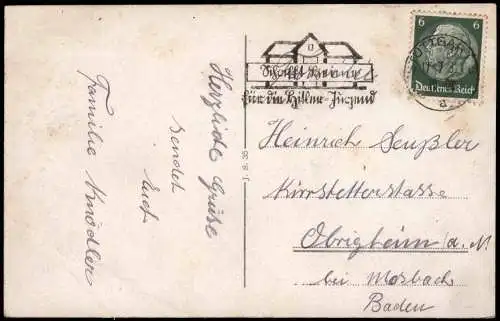 Herzliche Grüße
sendet
Euch
Familie Knödler
J. 8. 36
Schafft Heime
für die Hitler-Jugend
6 6
Deutsches Reich
STUTTGART
a
Heinrich
Obrigheim a. N.
bei Mosbach
Baden